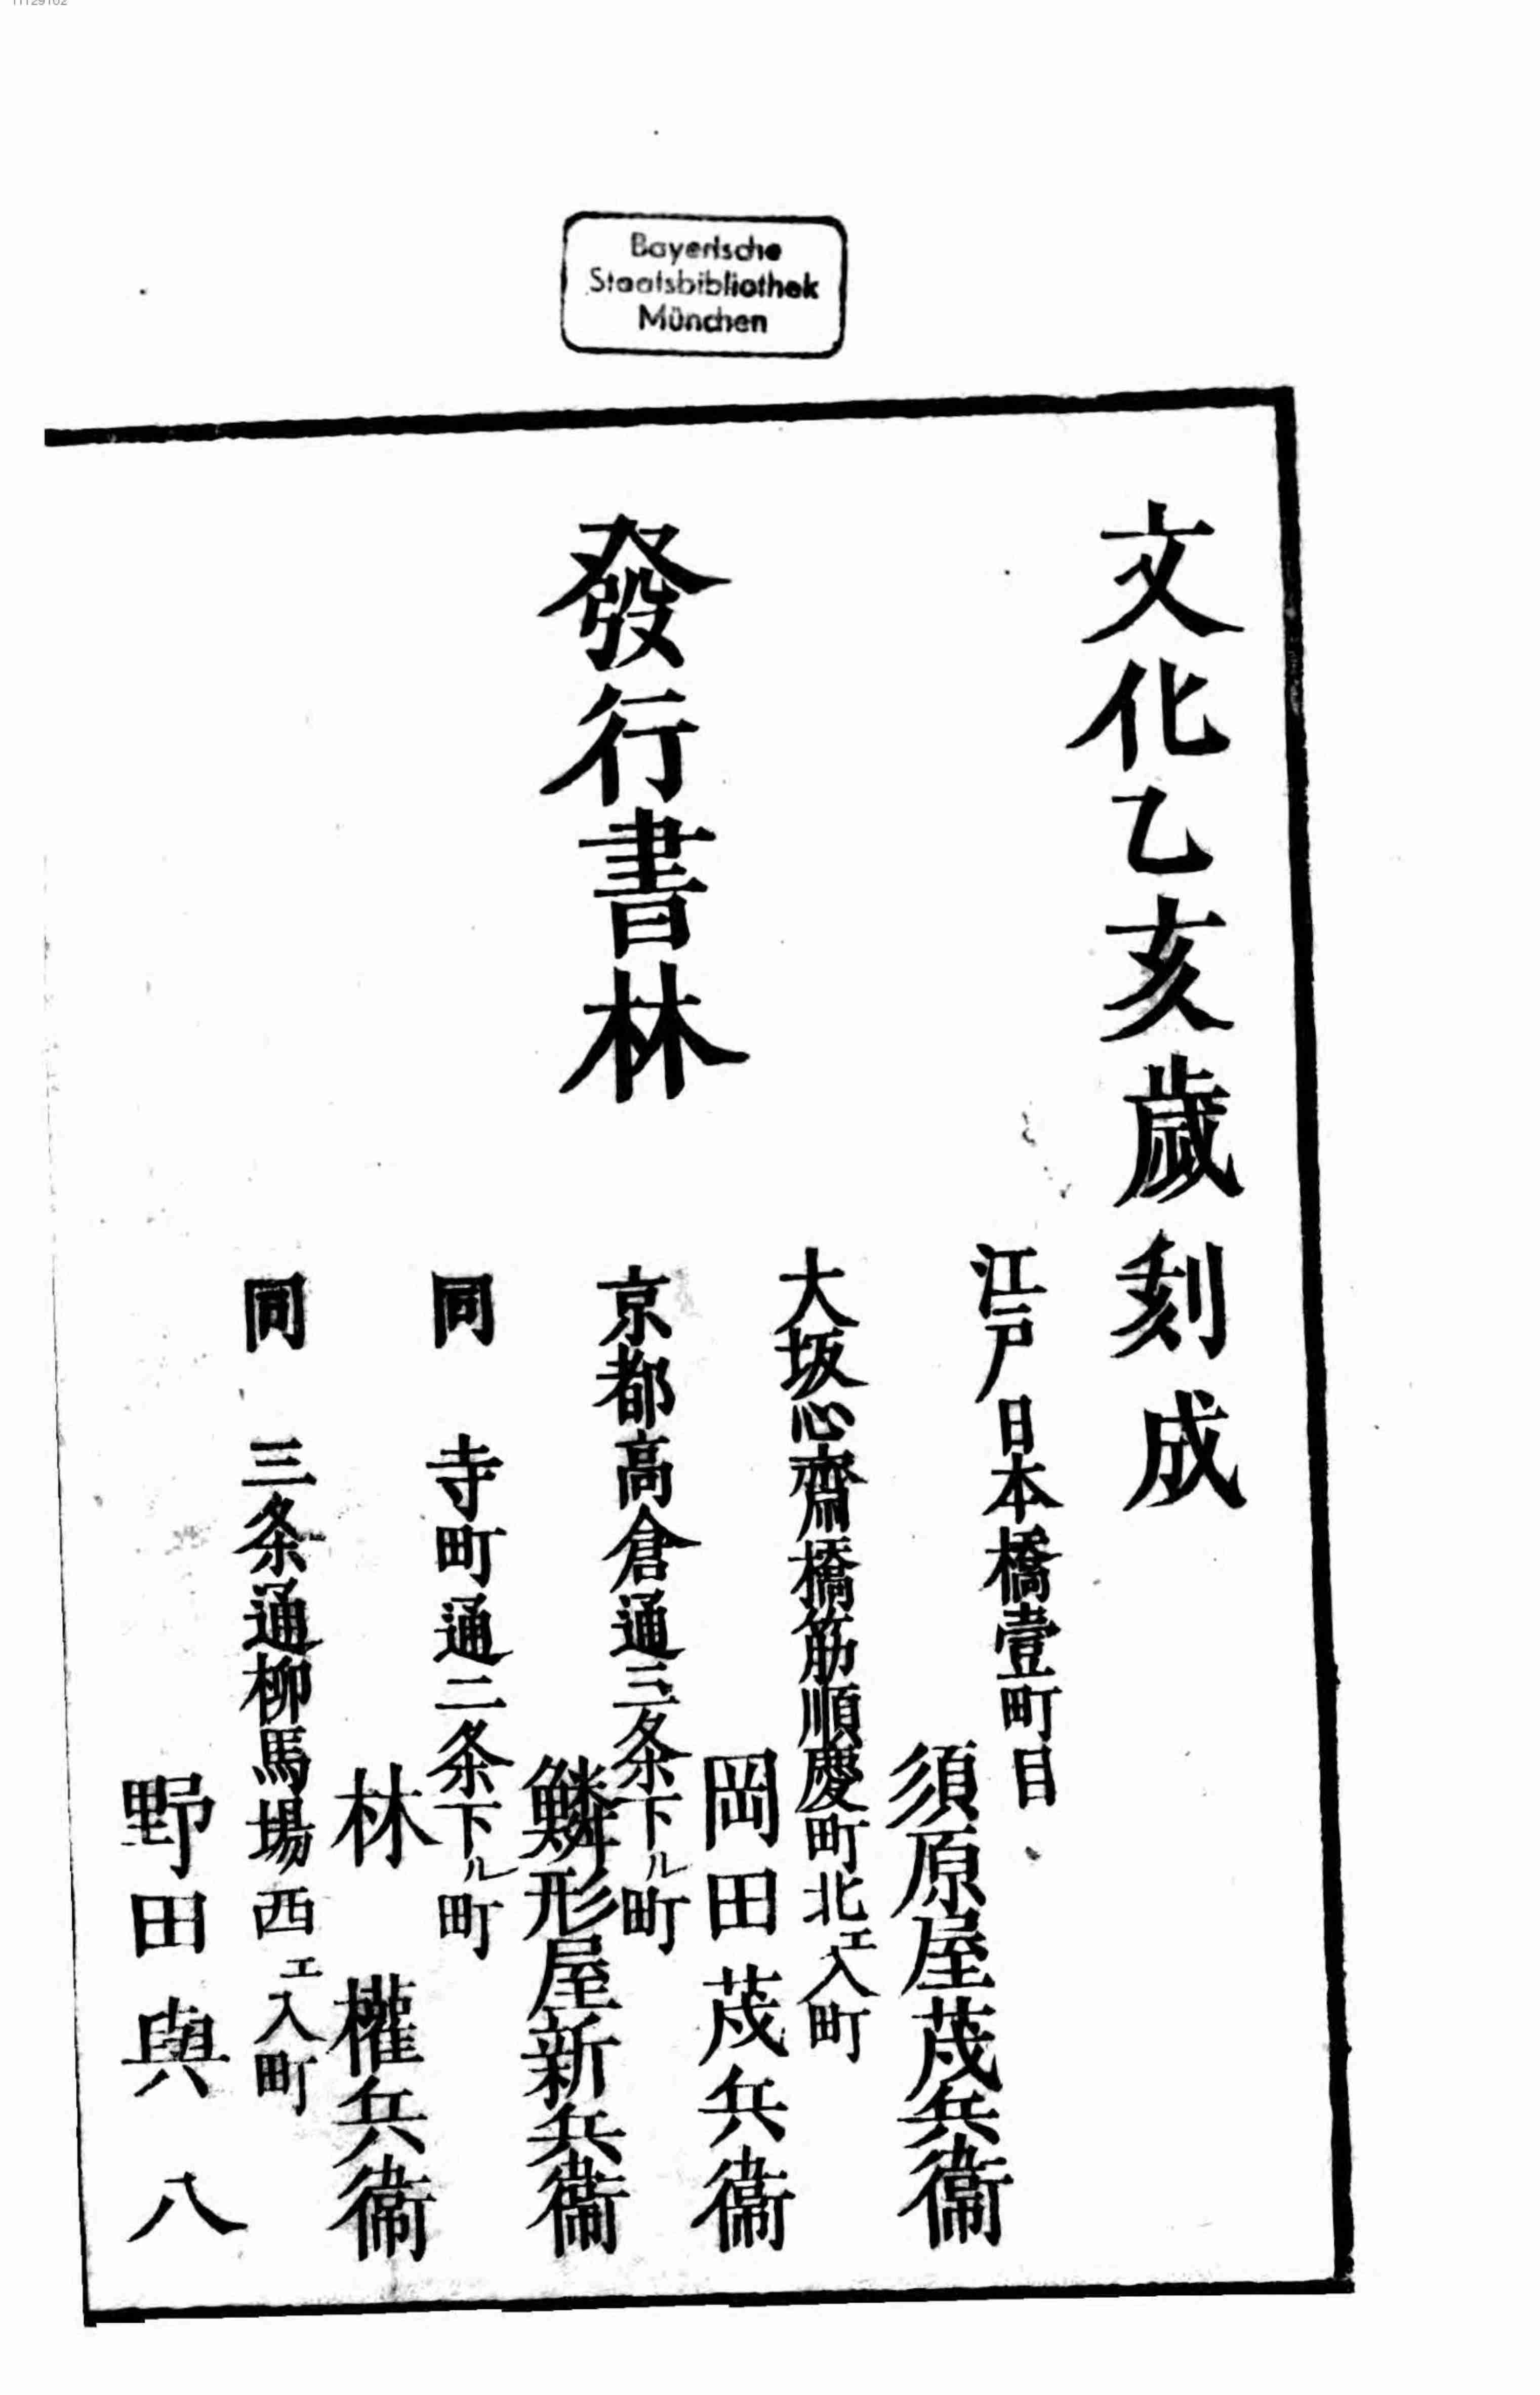 Bayerische
Staatsbibliothek
München
文化乙亥歳刻成
發行書林
江戸日本橋壹町目
須原屋茂兵衞
大坂心齋橋筋順慶町北エ入町
岡田茂兵衞
京都高倉通三条下ル町
鱗形屋新兵衞
同 寺町通二条下ル町
林 權兵衞
同 三条通柳馬場西エ入町
野田與八